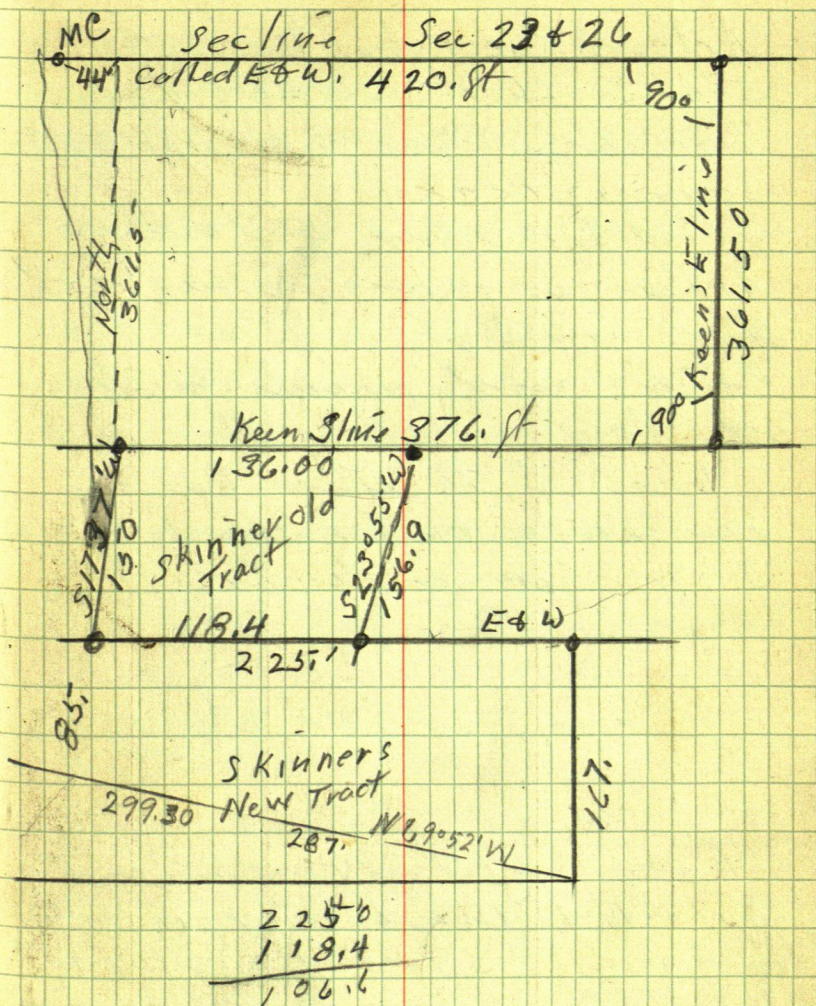 MC Sec line Sec 23 & 26
44' Called E & W. 420. ft
90°
North
361.5
Keen's E line
361.50
90°
Keen S line 376. ft
136.00
S 17 37' W
150
Skinner old
Tract
S 23° 55' W
156.9
118.4
E & W
225.'
85.
Skinners
New Tract
299.30
287.
N 69° 52' W
167.
225.0
118.4
106.6